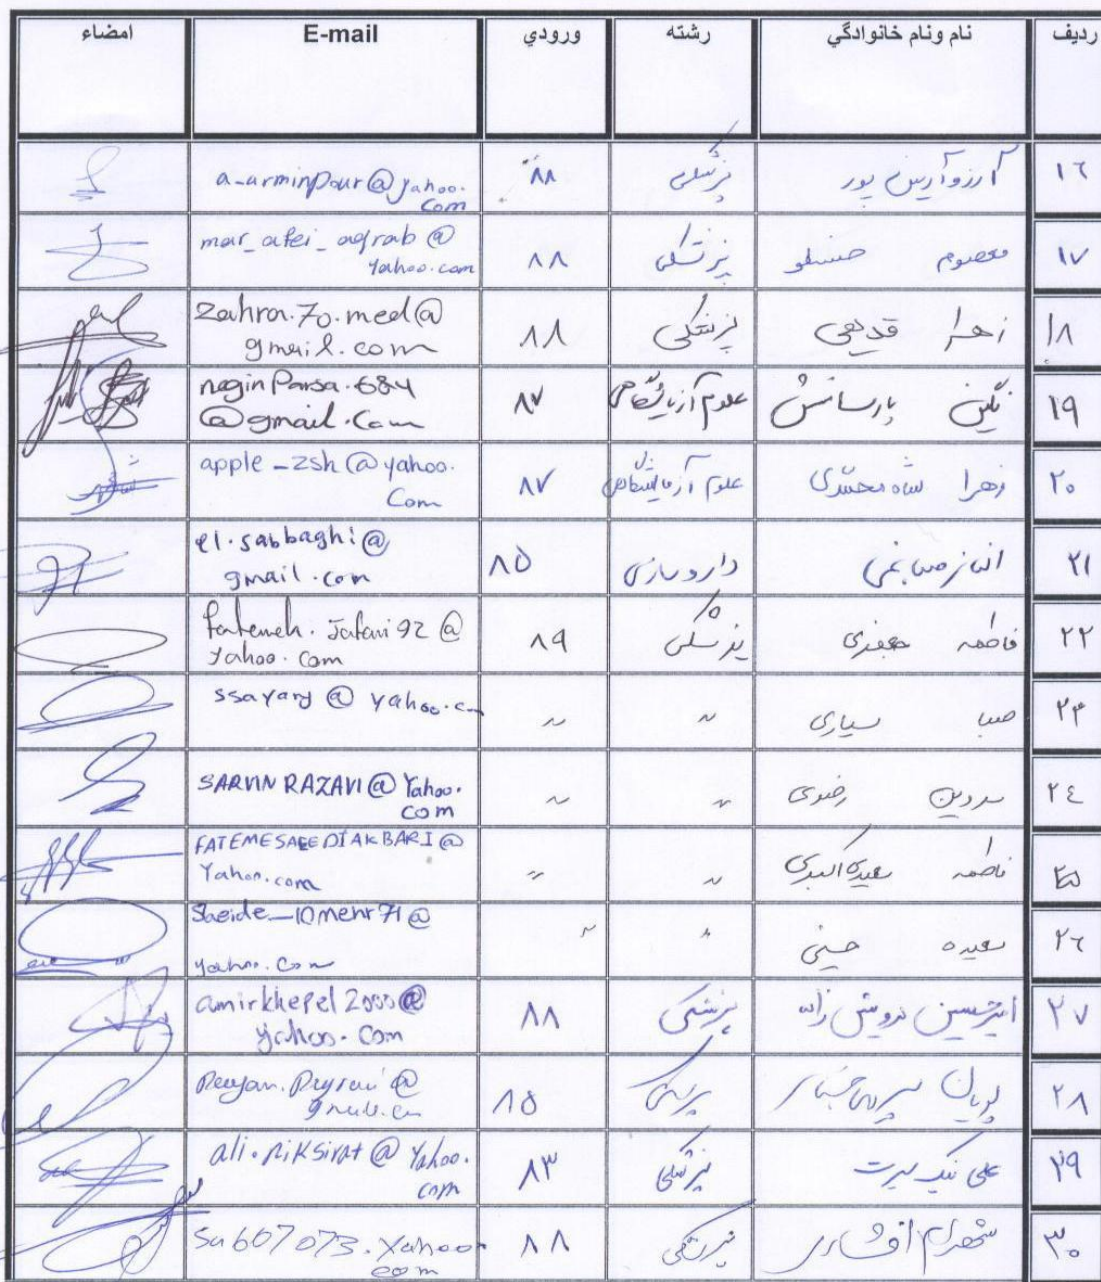 ردیف نام ونام خانوادگي رشته ورودي E-mail امضاء
۱۶ آرزو آرمین پور پزشکی ۸۸ a-arminpour@yahoo.
com
۱۷ معصوم پزشکی ۸۸ mar_atei_agrab@
yahoo.com
۱۸ زهرا قدیمی پزشکی ۸۸ zahra.70.med@
gmail.com
۱۹ نگین پارسانش علوم آزمایشگاهی ۸۷ neginParsa.684
@gmail.com
۲۰ زهرا شاه محمدی علوم آزمایشگاهی ۸۷ apple_zsh@yahoo.
Com
۲۱ الناز صباغی داروسازی ۸۵ el.sabbaghi@
gmail.com
۲۲ فاطمه جعفری پزشکی ۸۹ fatemeh.Jafari92@
Yahoo.com
۲۳ صبا سیاری " " ssayary@yahoo.com
۲۴ سروین رضوی " " SARVIN RAZAVI@Yahoo.
com
۲۵ فاطمه سعیدی اکبری " " FATEMESAEEDIAKBARI@
Yahoo.com
۲۶ سعیده حسینی " " Saeide_10mehr71@
yahoo.com
۲۷ امیرحسین درویش زاده پزشکی ۸۸ amirkhepel2000@
yahoo.com
۲۸ پویان پزشکی ۸۵
gmail.com
۲۹ علی نیک سیرت پزشکی ۸۳ ali.niksirat@Yahoo.
com
۳۰ شهرام افشاری پزشکی ۸۸ Sa607073.Yahoo
com